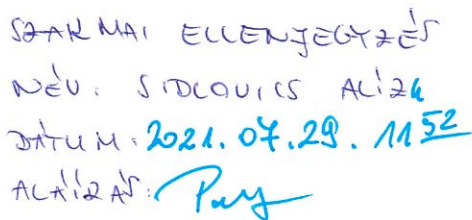 SZAKMAI ELLENJEGYZÉS
NÉV: SIDLOVICS ALÍZ
DÁTUM: 2021.07.29. 11 52
ALÁÍRÁS: